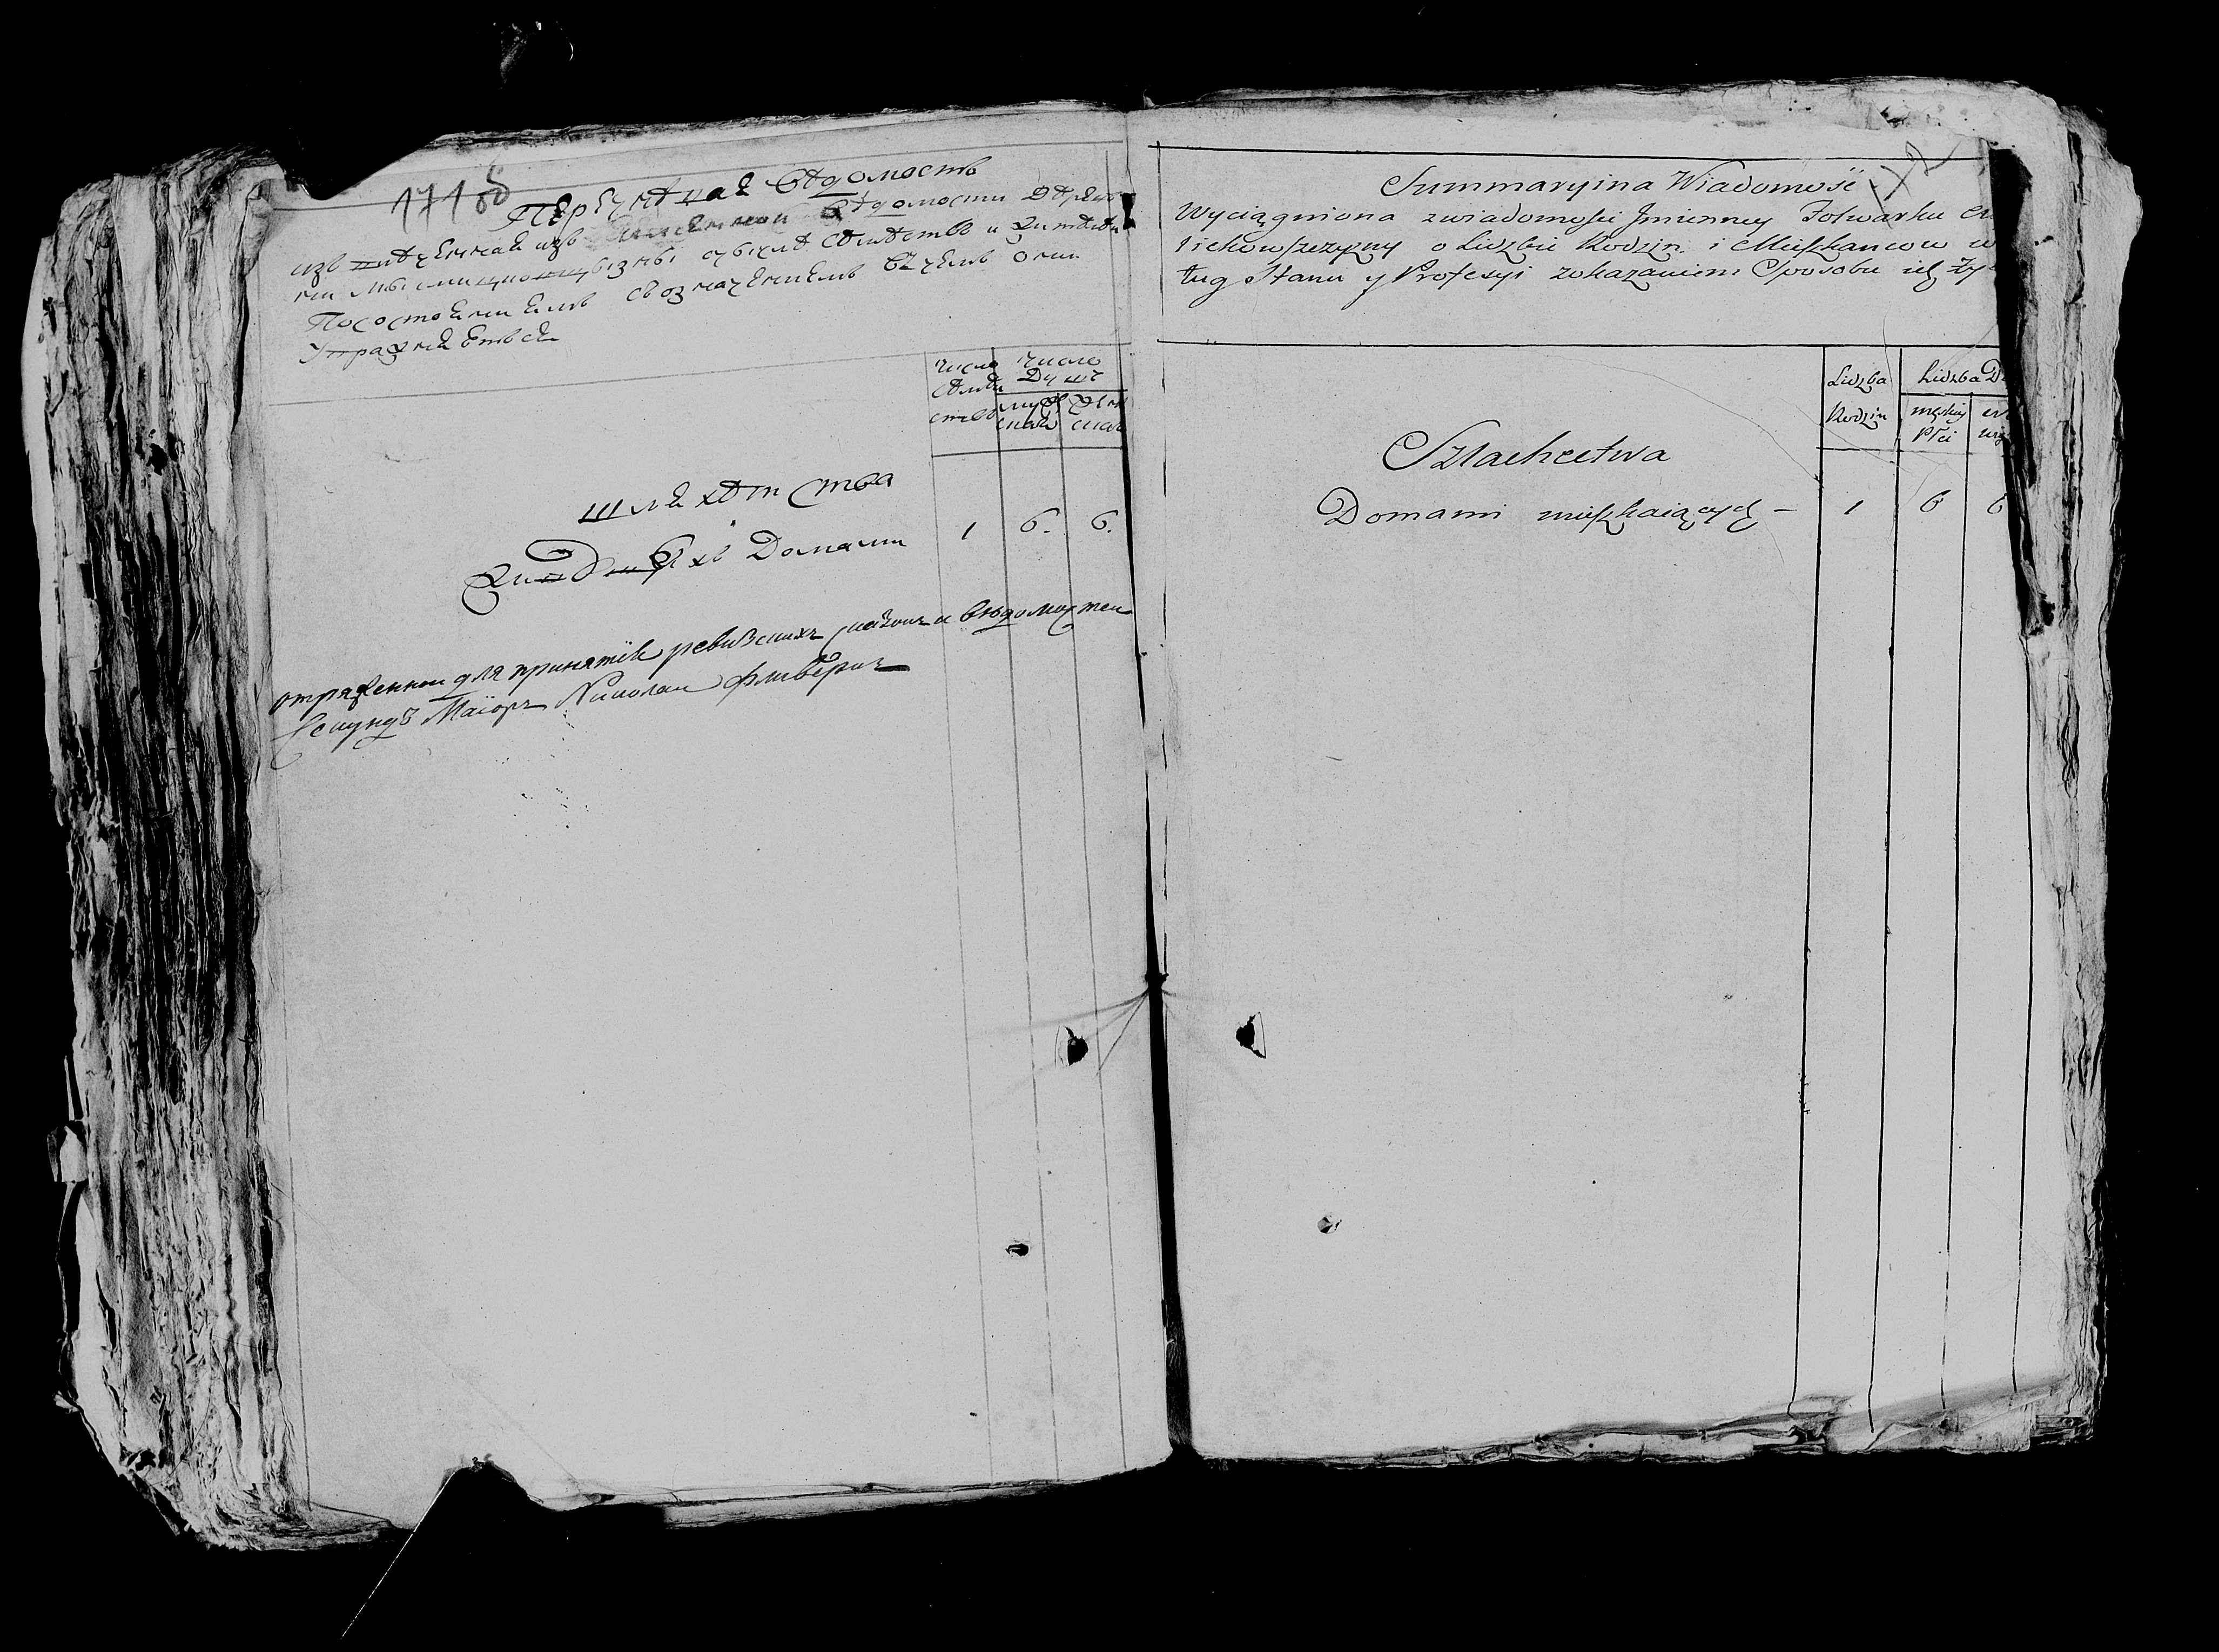 1718
Перечнѣвая Вѣдомость
извлѣченная изъ имянной вѣдомости Дерев
ни о числѣ сѣмѣйствъ и жителѣй
По состояниямъ съ означениемъ въ чемъ они
Упражняются
число сѣмѣй ствъ
число Душъ
мужскаго
женскаго
Шляхѣтства
Живущихъ Домами 1 6. 6.
отряженной для принятия ревизскихъ сказокъ и вѣдомостей
Секундъ Маіоръ Николай
Summaryina Wiadomość
Wyciągniona z wiadomości Jmienney Folwarku
o Lidzbie Rodzin i Mieszkancow w
ług stanu y Profesyi z okazaniem Sposobu ich ży
Lidzba Rodzin
Lidzba D
męskiey płci
Szlachectwa
Domami mieszkaiących – 1 6 6